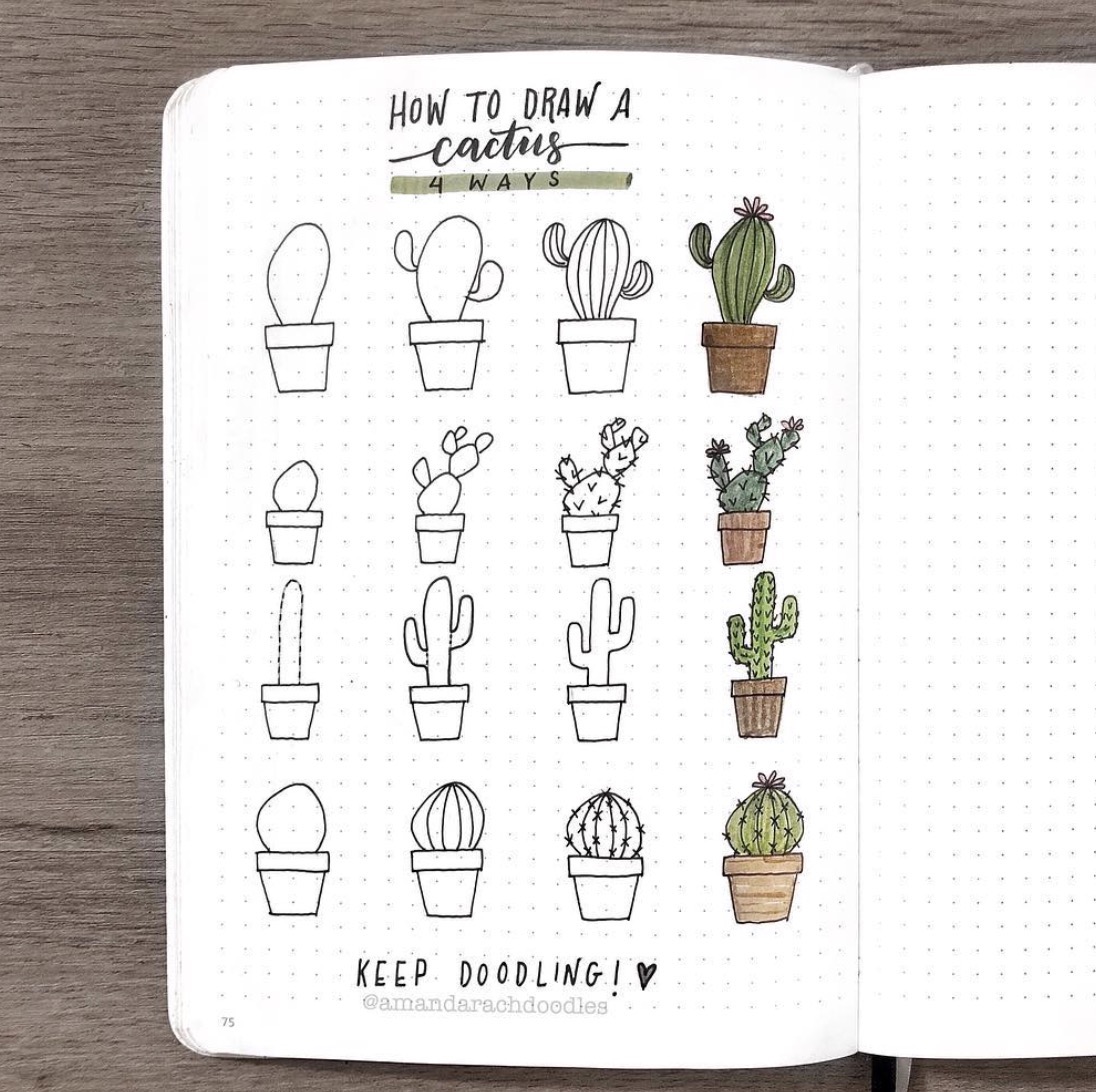 HOW TO DRAW A
cactus
4 WAYS
KEEP DOODLING! ♥
@amandarachdoodles
75